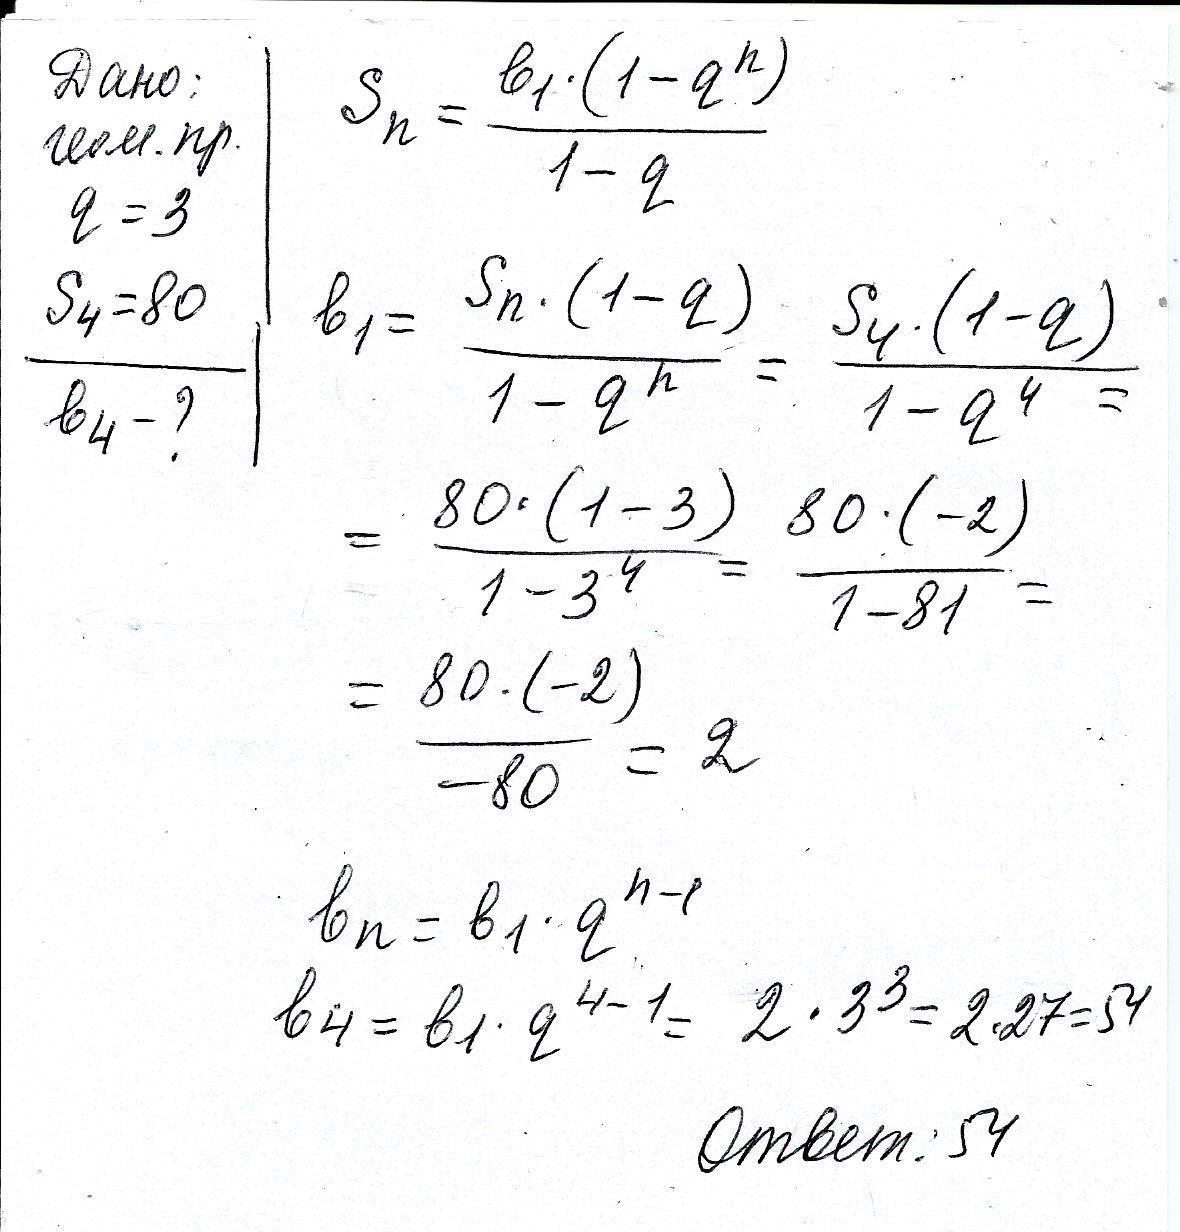 Дано:
геом. пр.
q = 3
S₄ = 80
b₄ - ?
Sₙ = b₁·(1-qⁿ) / 1-q
b₁ = Sₙ·(1-q) / 1-qⁿ = S₄·(1-q) / 1-q⁴ =
= 80·(1-3) / 1-3⁴ = 80·(-2) / 1-81 =
= 80·(-2) / -80 = 2
bₙ = b₁·qⁿ⁻¹
b₄ = b₁·q⁴⁻¹ = 2·3³ = 2·27 = 54
Ответ: 54